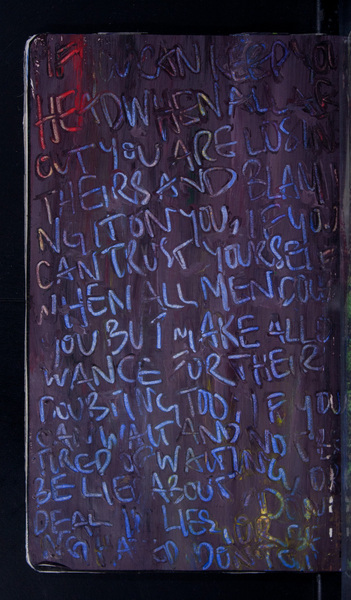 IF YOU CAN KEEP YOU
HEAD WHEN ALL AB
OUT YOU ARE LOSIN
THEIRS AND BLAMI
NG IT ON YOU, IF YOU
CAN TRUST YOURSELF
WHEN ALL MEN DOU
YOU BUT MAKE ALLO
WANCE FOR THEIR
DOUBTING TOO, IF YOU
CAN WAIT AND NO
TIRED WAITING,
BE LIE ABOUT DON
DEAL IN LIES, OR BE
NG DON'T